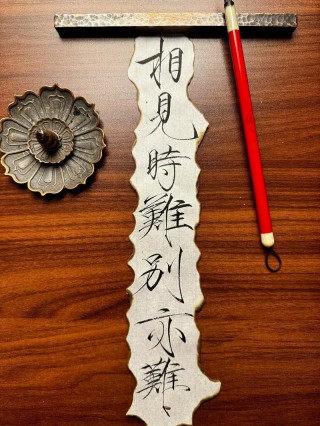 相見時難別亦難